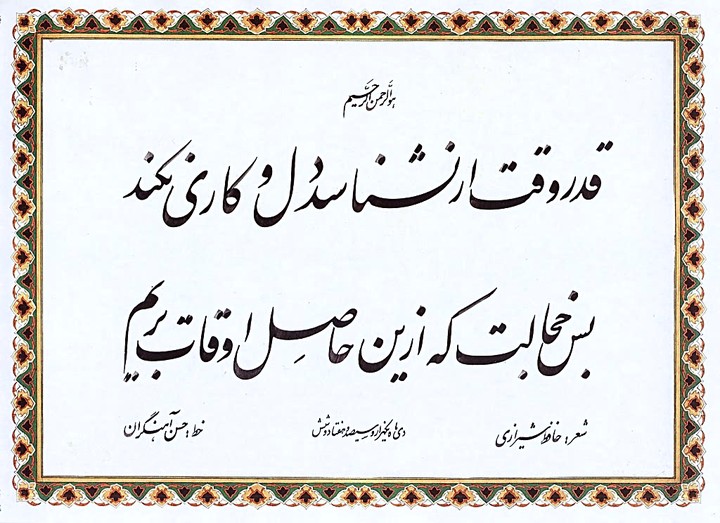 هو الرحمن الرحیم
قدر وقت ار نشناسد دل و کاری نکند
بس خجالت که ازین حاصل اوقات بریم
شعر: حافظ شیرازی
دی ماه یکهزار و سیصد و هفتاد و شش
خط: حسن آهنگران